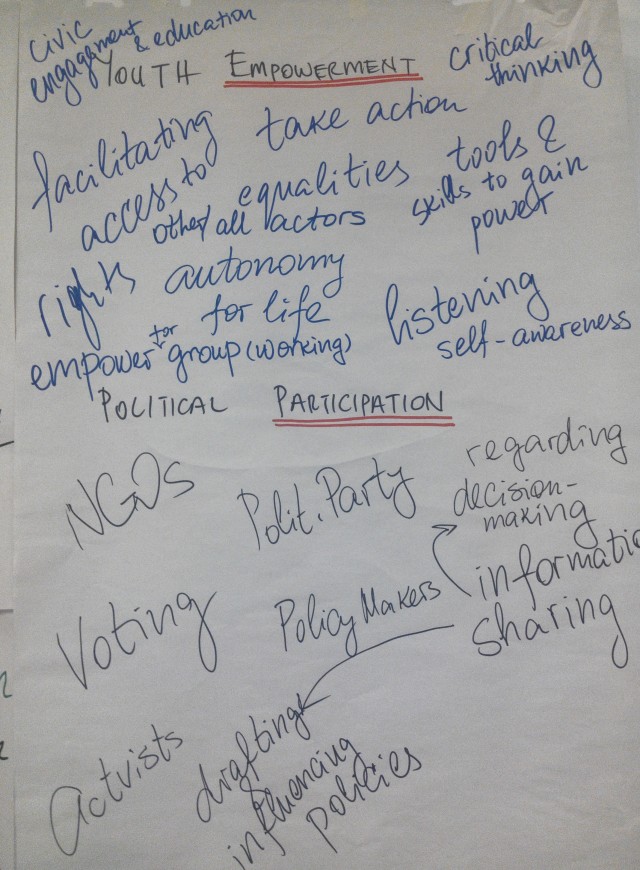 civic
engagement & education
YOUTH EMPOWERMENT
critical
thinking
facilitating
access to
take action
equalities
other/all actors
tools &
skills to gain
power
rights
autonomy
for life
empower for group (working)
listening
self-awareness
POLITICAL PARTICIPATION
NGOs
Polit. Party
regarding
decision-
making
Voting
Policy Makers
informatio
sharing
Actvists
drafting
influencing
policies